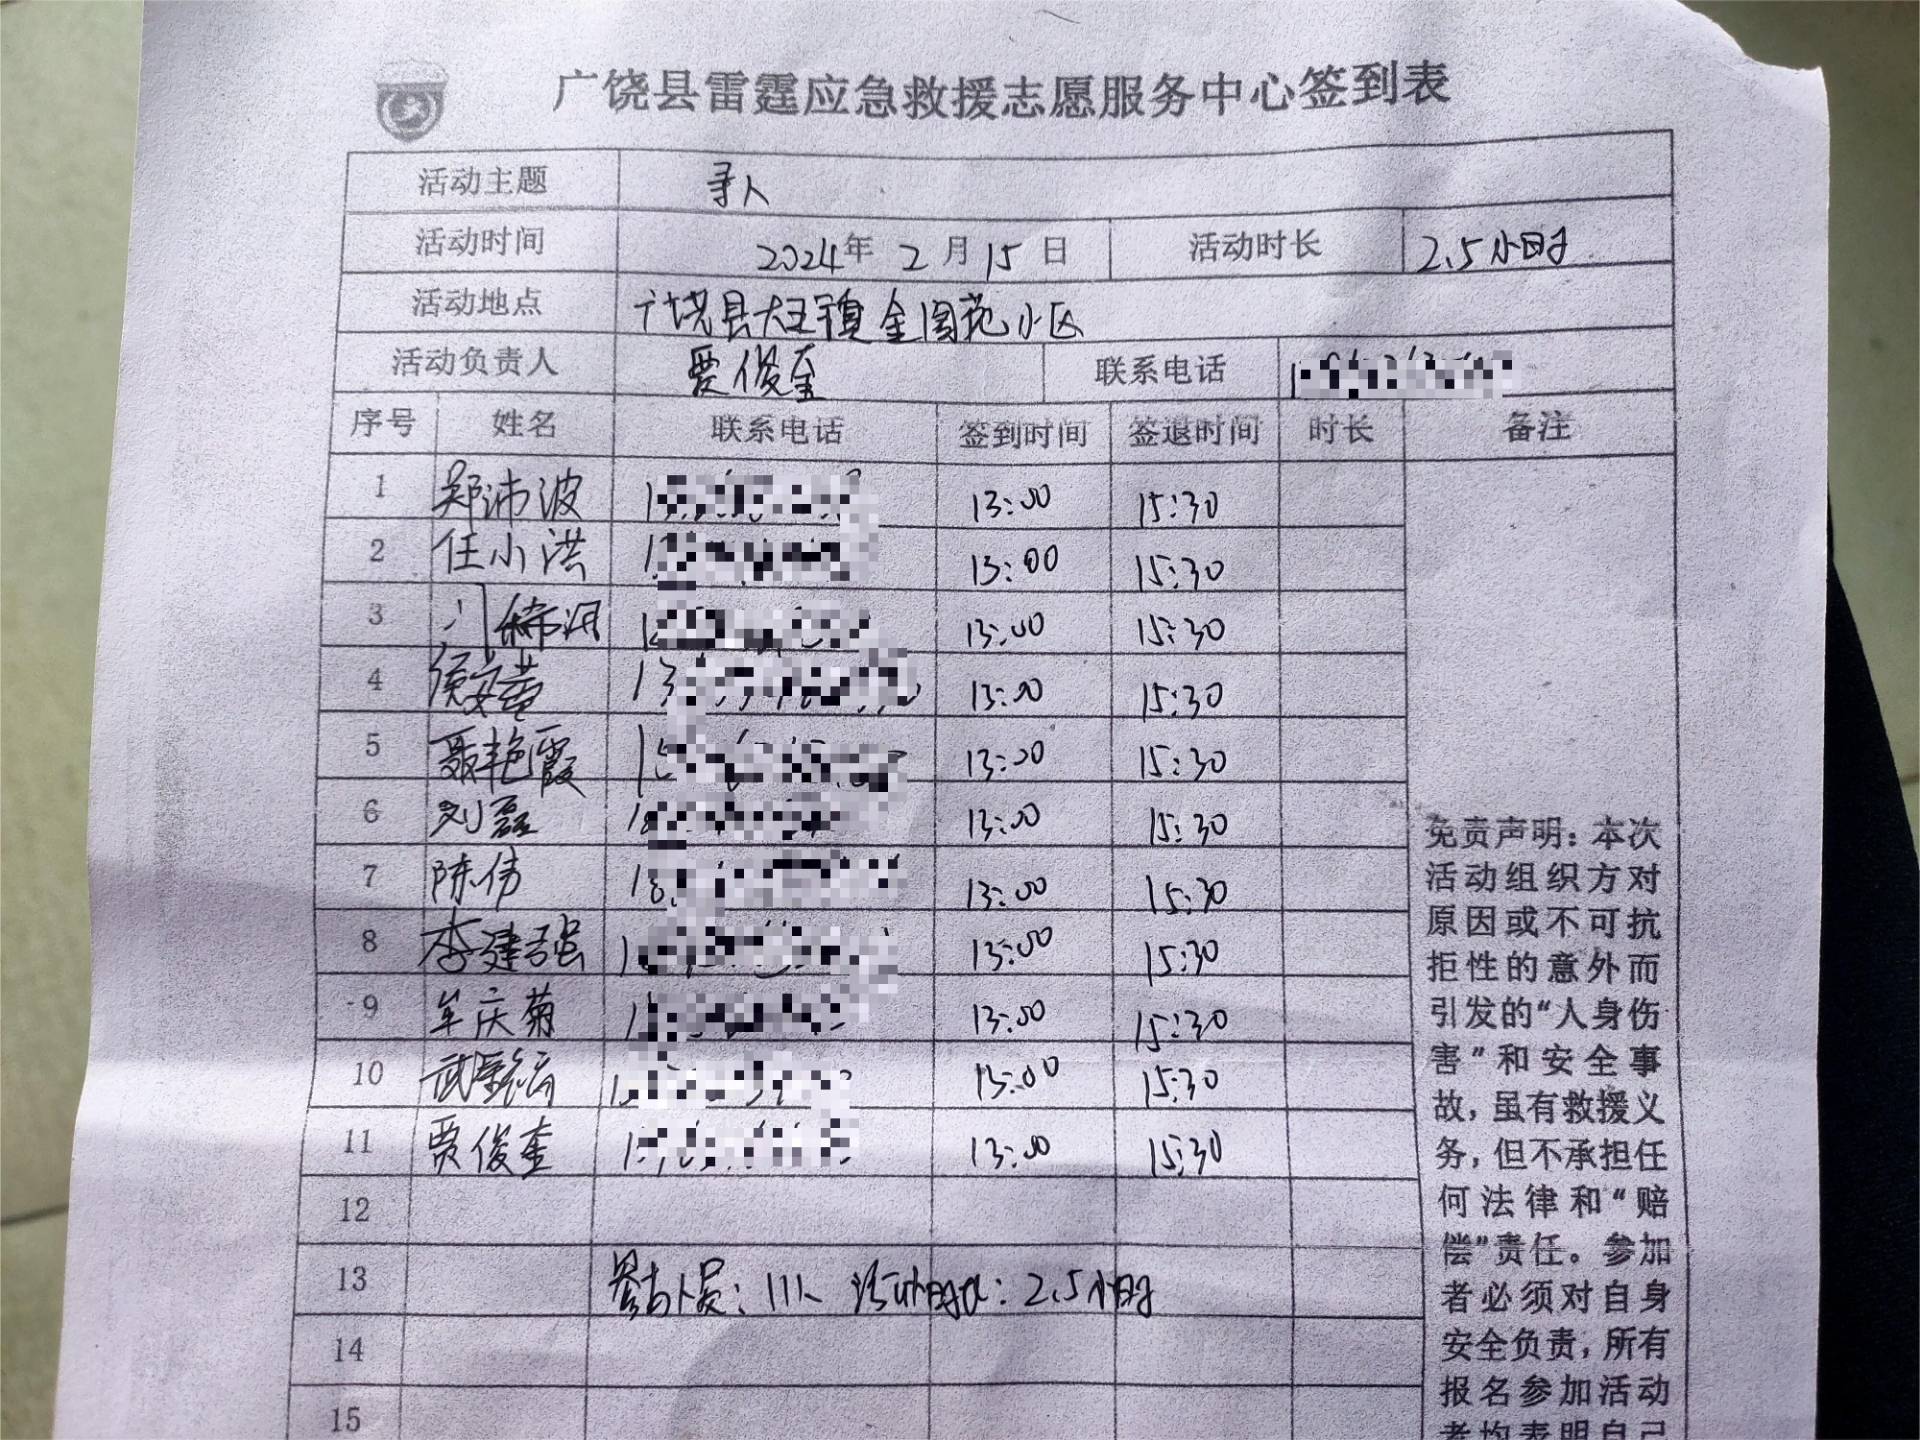 广饶县雷霆应急救援志愿服务中心签到表
活动主题 寻人
活动时间 2024年 2 月 15 日 活动时长 2.5小时
活动地点 广饶县大王镇金园苑小区
活动负责人 贾俊奎 联系电话
序号 姓名 联系电话 签到时间 签退时间 时长 备注
1 郑沛波 13:00 15:30
2 任小洪 13:00 15:30
3 13:00 15:30
4 13:00 15:30
5 聂艳霞 13:00 15:30
6 刘磊 13:00 15:30
7 陈伟 13:00 15:30
8 李建强 13:00 15:30
9 牟庆菊 13:00 15:30
10 13:00 15:30
11 贾俊奎 13:00 15:30
12
13 参与人员：11人 活动时长：2.5小时
14
15
免责声明：本次
活动组织方对
原因或不可抗
拒性的意外而
引发的“人身伤
害”和安全事
故，虽有救援义
务，但不承担任
何法律和“赔
偿”责任。参加
者必须对自身
安全负责，所有
报名参加活动
者均表明自己